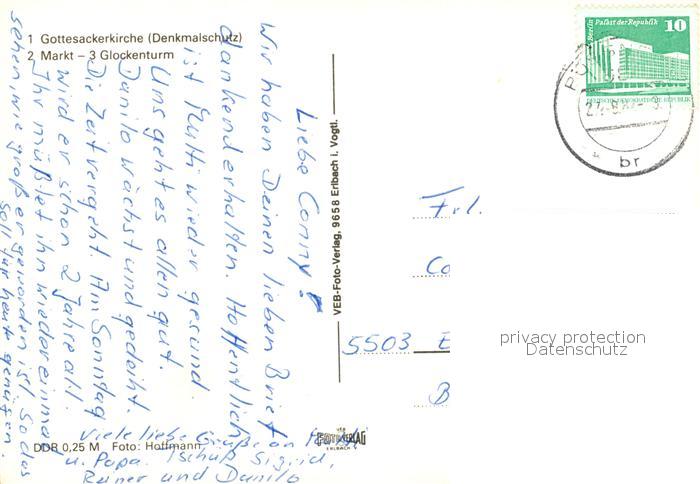 1 Gottesackerkirche (Denkmalschutz)
2 Markt – 3 Glockenturm
Liebe Conny!
Wir haben Deinen lieben Brief
dankend erhalten. Hoffentlich
ist Mutti wieder gesund.
Uns geht es allen gut.
Danilo wächst und gedeiht.
Die Zeit vergeht. Am Sonntag
wird er schon 2 Jahre alt.
Ihr müßtet ihn wieder einmal
sehen, wie groß er geworden ist. So das
soll für heute genügen.
Viele liebe Grüße an
u. Papa. Tschüß Sigrid,
Reiner und Danilo
DDR 0,25 M Foto: Hoffmann
VEB FOTO-VERLAG
ERLBACH V.
VEB-Foto-Verlag, 9658 Erlbach i. Vogtl.
Berlin Palast der Republik
10
DEUTSCHE DEMOKRATISCHE REPUBLIK
br
Frl.
Co
5503 E
B
privacy protection
Datenschutz